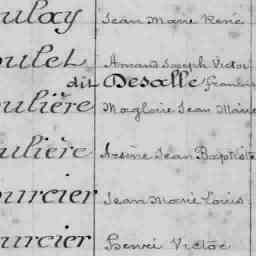 ulay Jean Marie René
oulet Armand Joseph Victor
dit Desalle
oulière Magloire Jean Marie
ulière Arsène Jean Baptiste
ourcier Jean Marie Louis
urcier Henri Victor